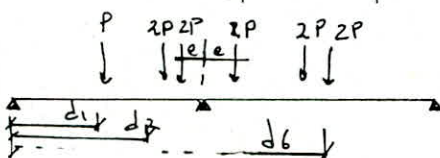 P 2P 2P 2P 2P 2P
e e
d1
d2
d6